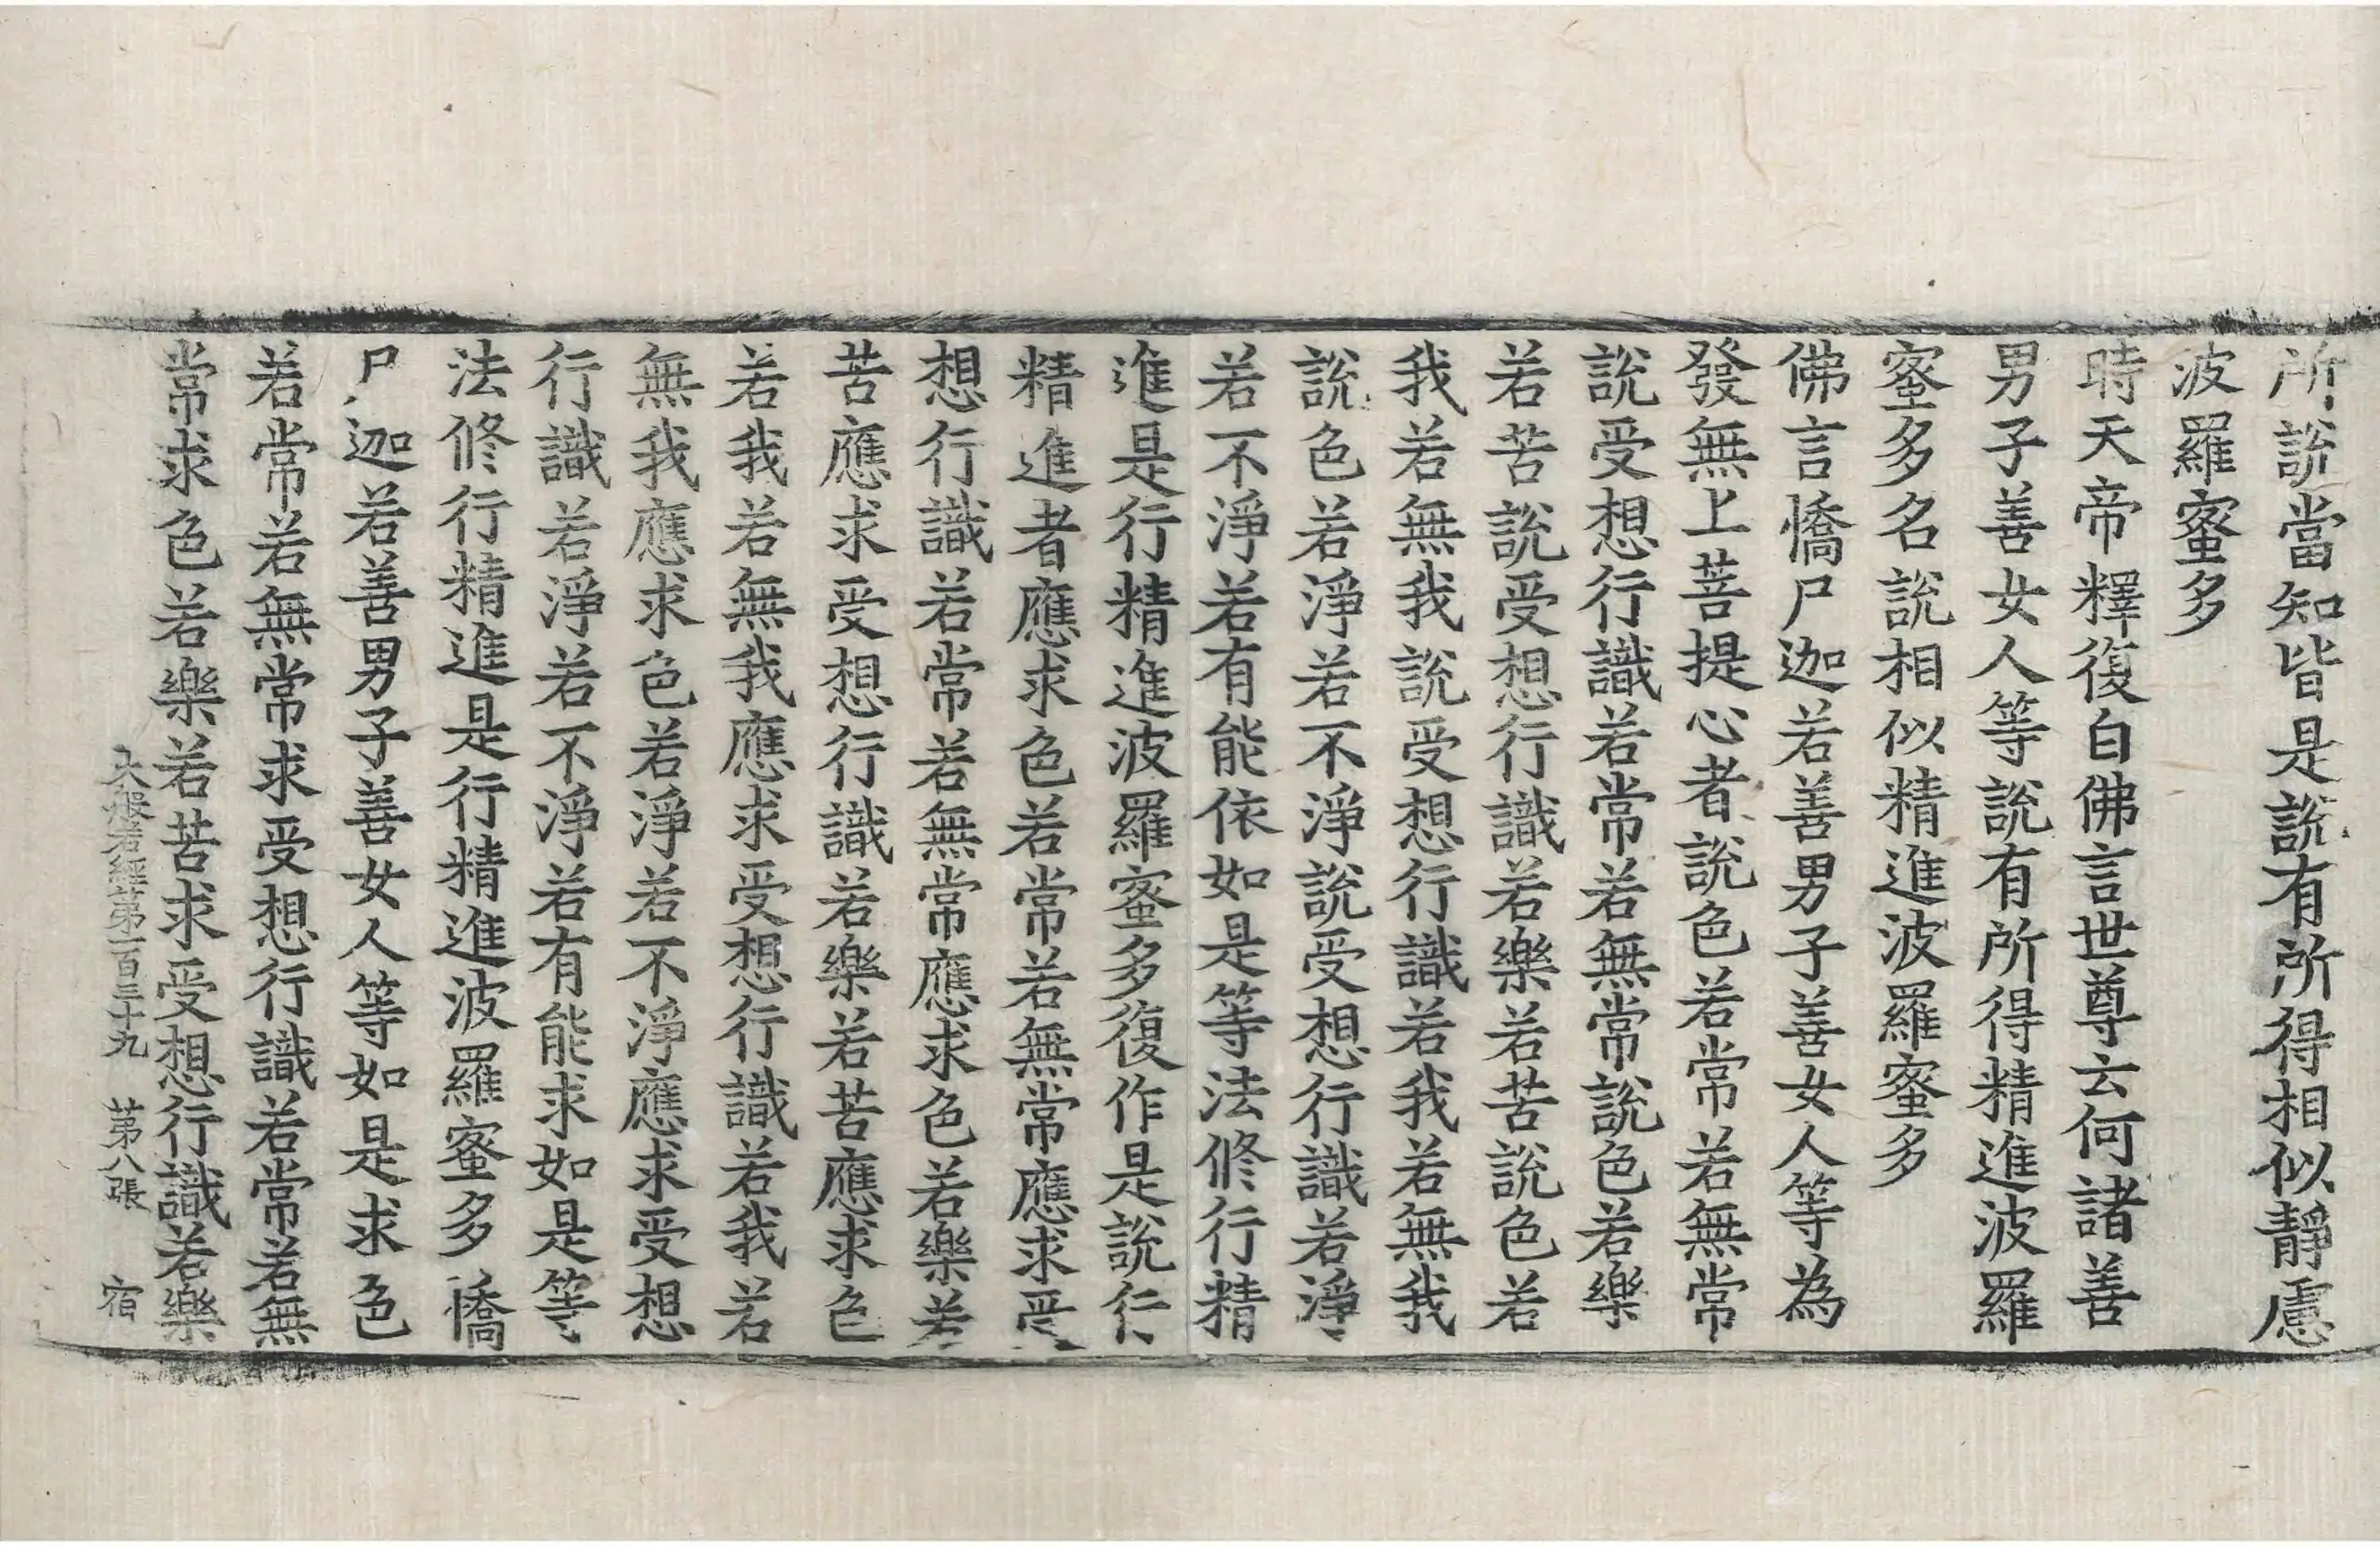 所說當知皆是說有所得相似靜慮
波羅蜜多
時天帝釋復白佛言世尊云何諸善
男子善女人等說有所得精進波羅
蜜多名說相似精進波羅蜜多
佛言憍尸迦若善男子善女人等為
發無上菩提心者說色若常若無常
說受想行識若常若無常說色若樂
若苦說受想行識若樂若苦說色若
我若無我說受想行識若我若無我
說色若淨若不淨說受想行識若淨
若不淨若有能依如是等法修行精
進是行精進波羅蜜多復作是說行
精進者應求色若常若無常應求受
想行識若常若無常應求色若樂若
苦應求受想行識若樂若苦應求色
若我若無我應求受想行識若我若
無我應求色若淨若不淨應求受想
行識若淨若不淨若有能求如是等
法修行精進是行精進波羅蜜多憍
尸迦若善男子善女人等如是求色
若常若無常求受想行識若常若無
常求色若樂若苦求受想行識若樂
大般若經第一百三十九 第八張 宿